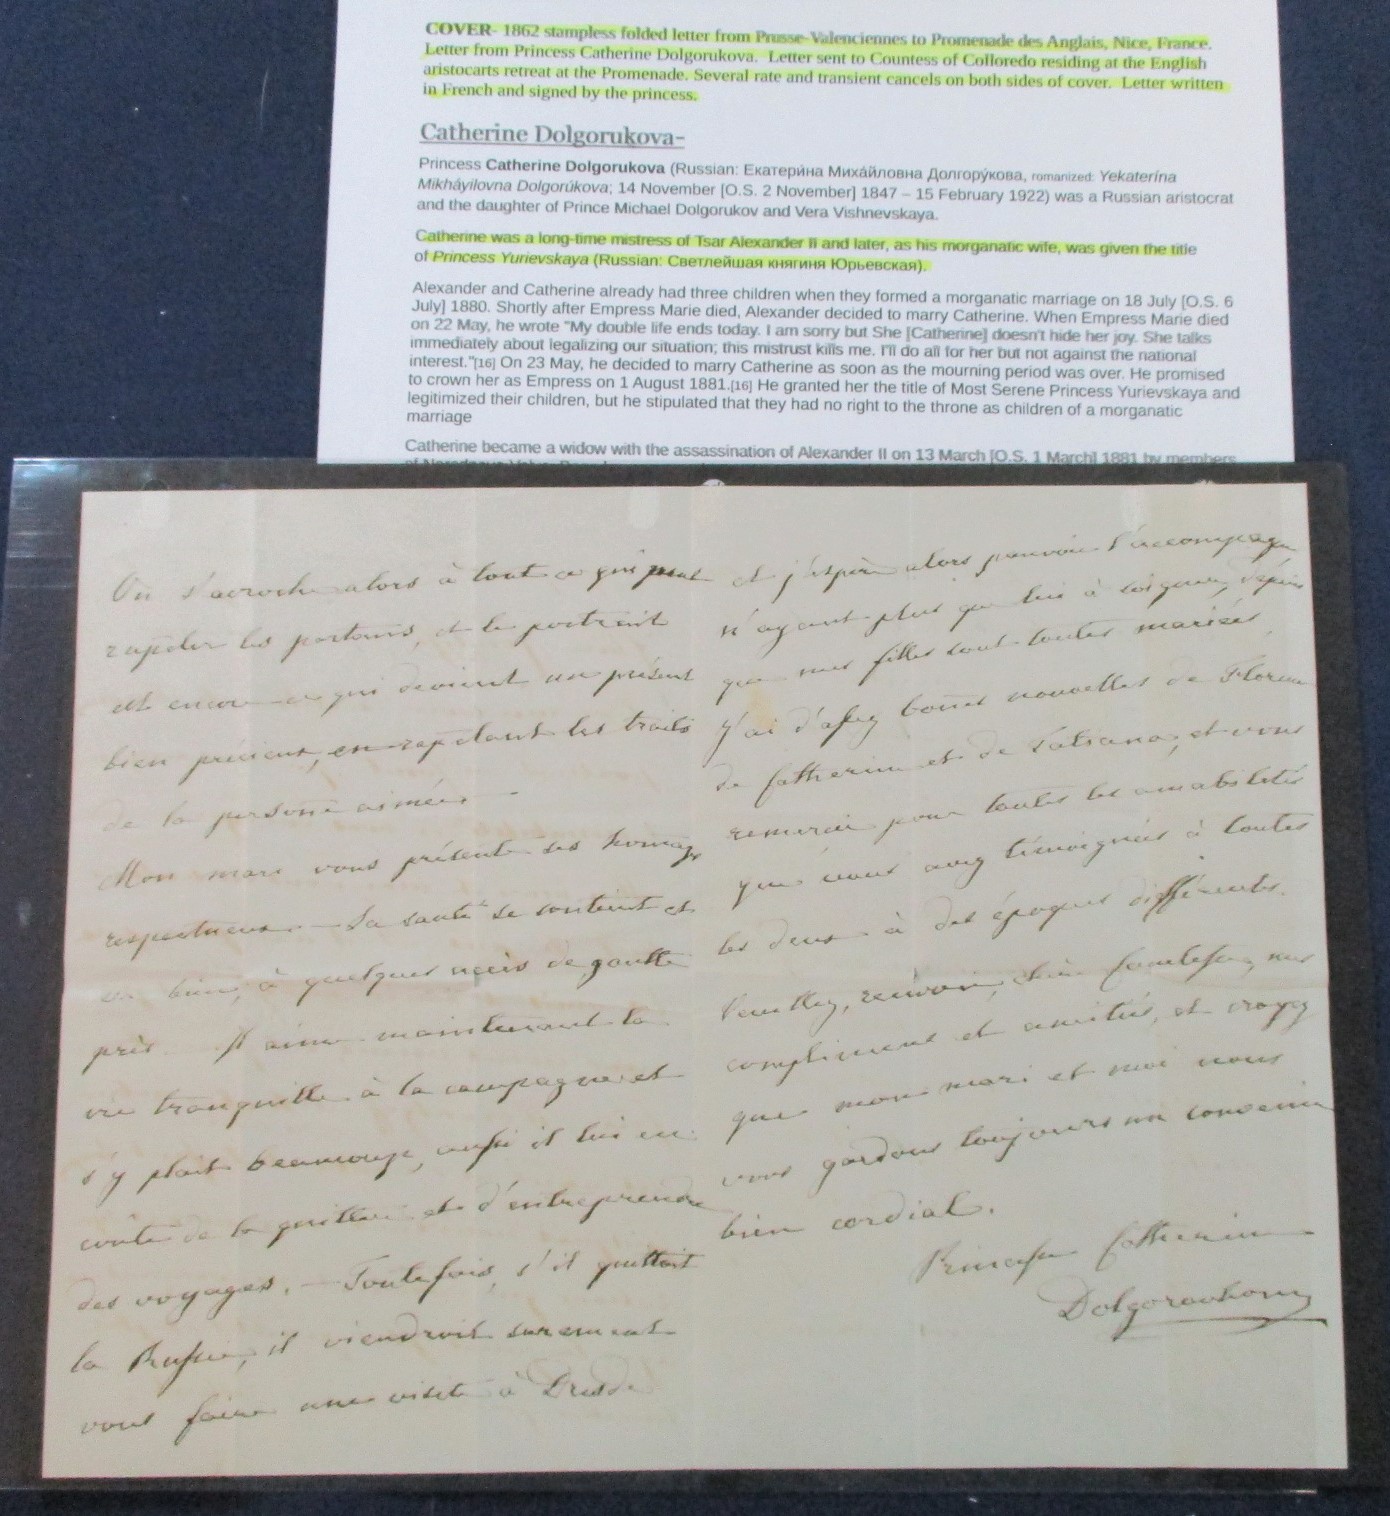 COVER- 1862 stampless folded letter from Prusse-Valenciennes to Promenade des Anglais, Nice, France.
Letter from Princess Catherine Dolgorukova. Letter sent to Countess of Colloredo residing at the English
aristocarts retreat at the Promenade. Several rate and transient cancels on both sides of cover. Letter written
in French and signed by the princess.
Catherine Dolgorukova-
Princess Catherine Dolgorukova (Russian: Екатери́на Миха́йловна Долгору́кова, romanized: Yekaterína
Mikháyilovna Dolgorúkova; 14 November [O.S. 2 November] 1847 – 15 February 1922) was a Russian aristocrat
and the daughter of Prince Michael Dolgorukov and Vera Vishnevskaya.
Catherine was a long-time mistress of Tsar Alexander II and later, as his morganatic wife, was given the title
of Princess Yurievskaya (Russian: Светлейшая княгиня Юрьевская).
Alexander and Catherine already had three children when they formed a morganatic marriage on 18 July [O.S. 6
July] 1880. Shortly after Empress Marie died, Alexander decided to marry Catherine. When Empress Marie died
on 22 May, he wrote "My double life ends today. I am sorry but She [Catherine] doesn't hide her joy. She talks
immediately about legalizing our situation; this mistrust kills me. I'll do all for her but not against the national
interest."[16] On 23 May, he decided to marry Catherine as soon as the mourning period was over. He promised
to crown her as Empress on 1 August 1881.[16] He granted her the title of Most Serene Princess Yurievskaya and
legitimized their children, but he stipulated that they had no right to the throne as children of a morganatic
marriage
Catherine became a widow with the assassination of Alexander II on 13 March [O.S. 1 March] 1881 by members
On s'acroche alors à tout ce qui peut
rapeler les et le portrait
est encore ce qui devient un présent
bien précieux, en rapelant les traits
de la personne aimée. —
Mon mari vous présente ses homages
respectueux. — Sa santé se soutient et
va bien, à quelques accès de goutte
près. Il aime maintenant la
vie tranquille à la campagne et
s'y plait beaucoup, aussi il lui en
coûte de la quitter et d'entreprendre
des voyages. — Toutefois, s'il quittait
la Russie, il viendroit surement
vous faire une visite à Dresde
et j'espère alors pouvoir l'accompagner
n'ayant plus que lui à soigner, depuis
que mes filles sont toutes mariées.
J'ai d'assez bonnes nouvelles de Florence
de Catherine et de Tatiana, et vous
remercie pour toutes les amabilités
que vous avez témoignées à toutes
les deux à des époques différentes.
Veuillez, recevoir, chère Comtesse, mes
compliments et amitiés, et croyez
que mon mari et moi nous
vous gardons toujours un souvenir
bien cordial.
Princesse Catherine
Dolgoroukouy